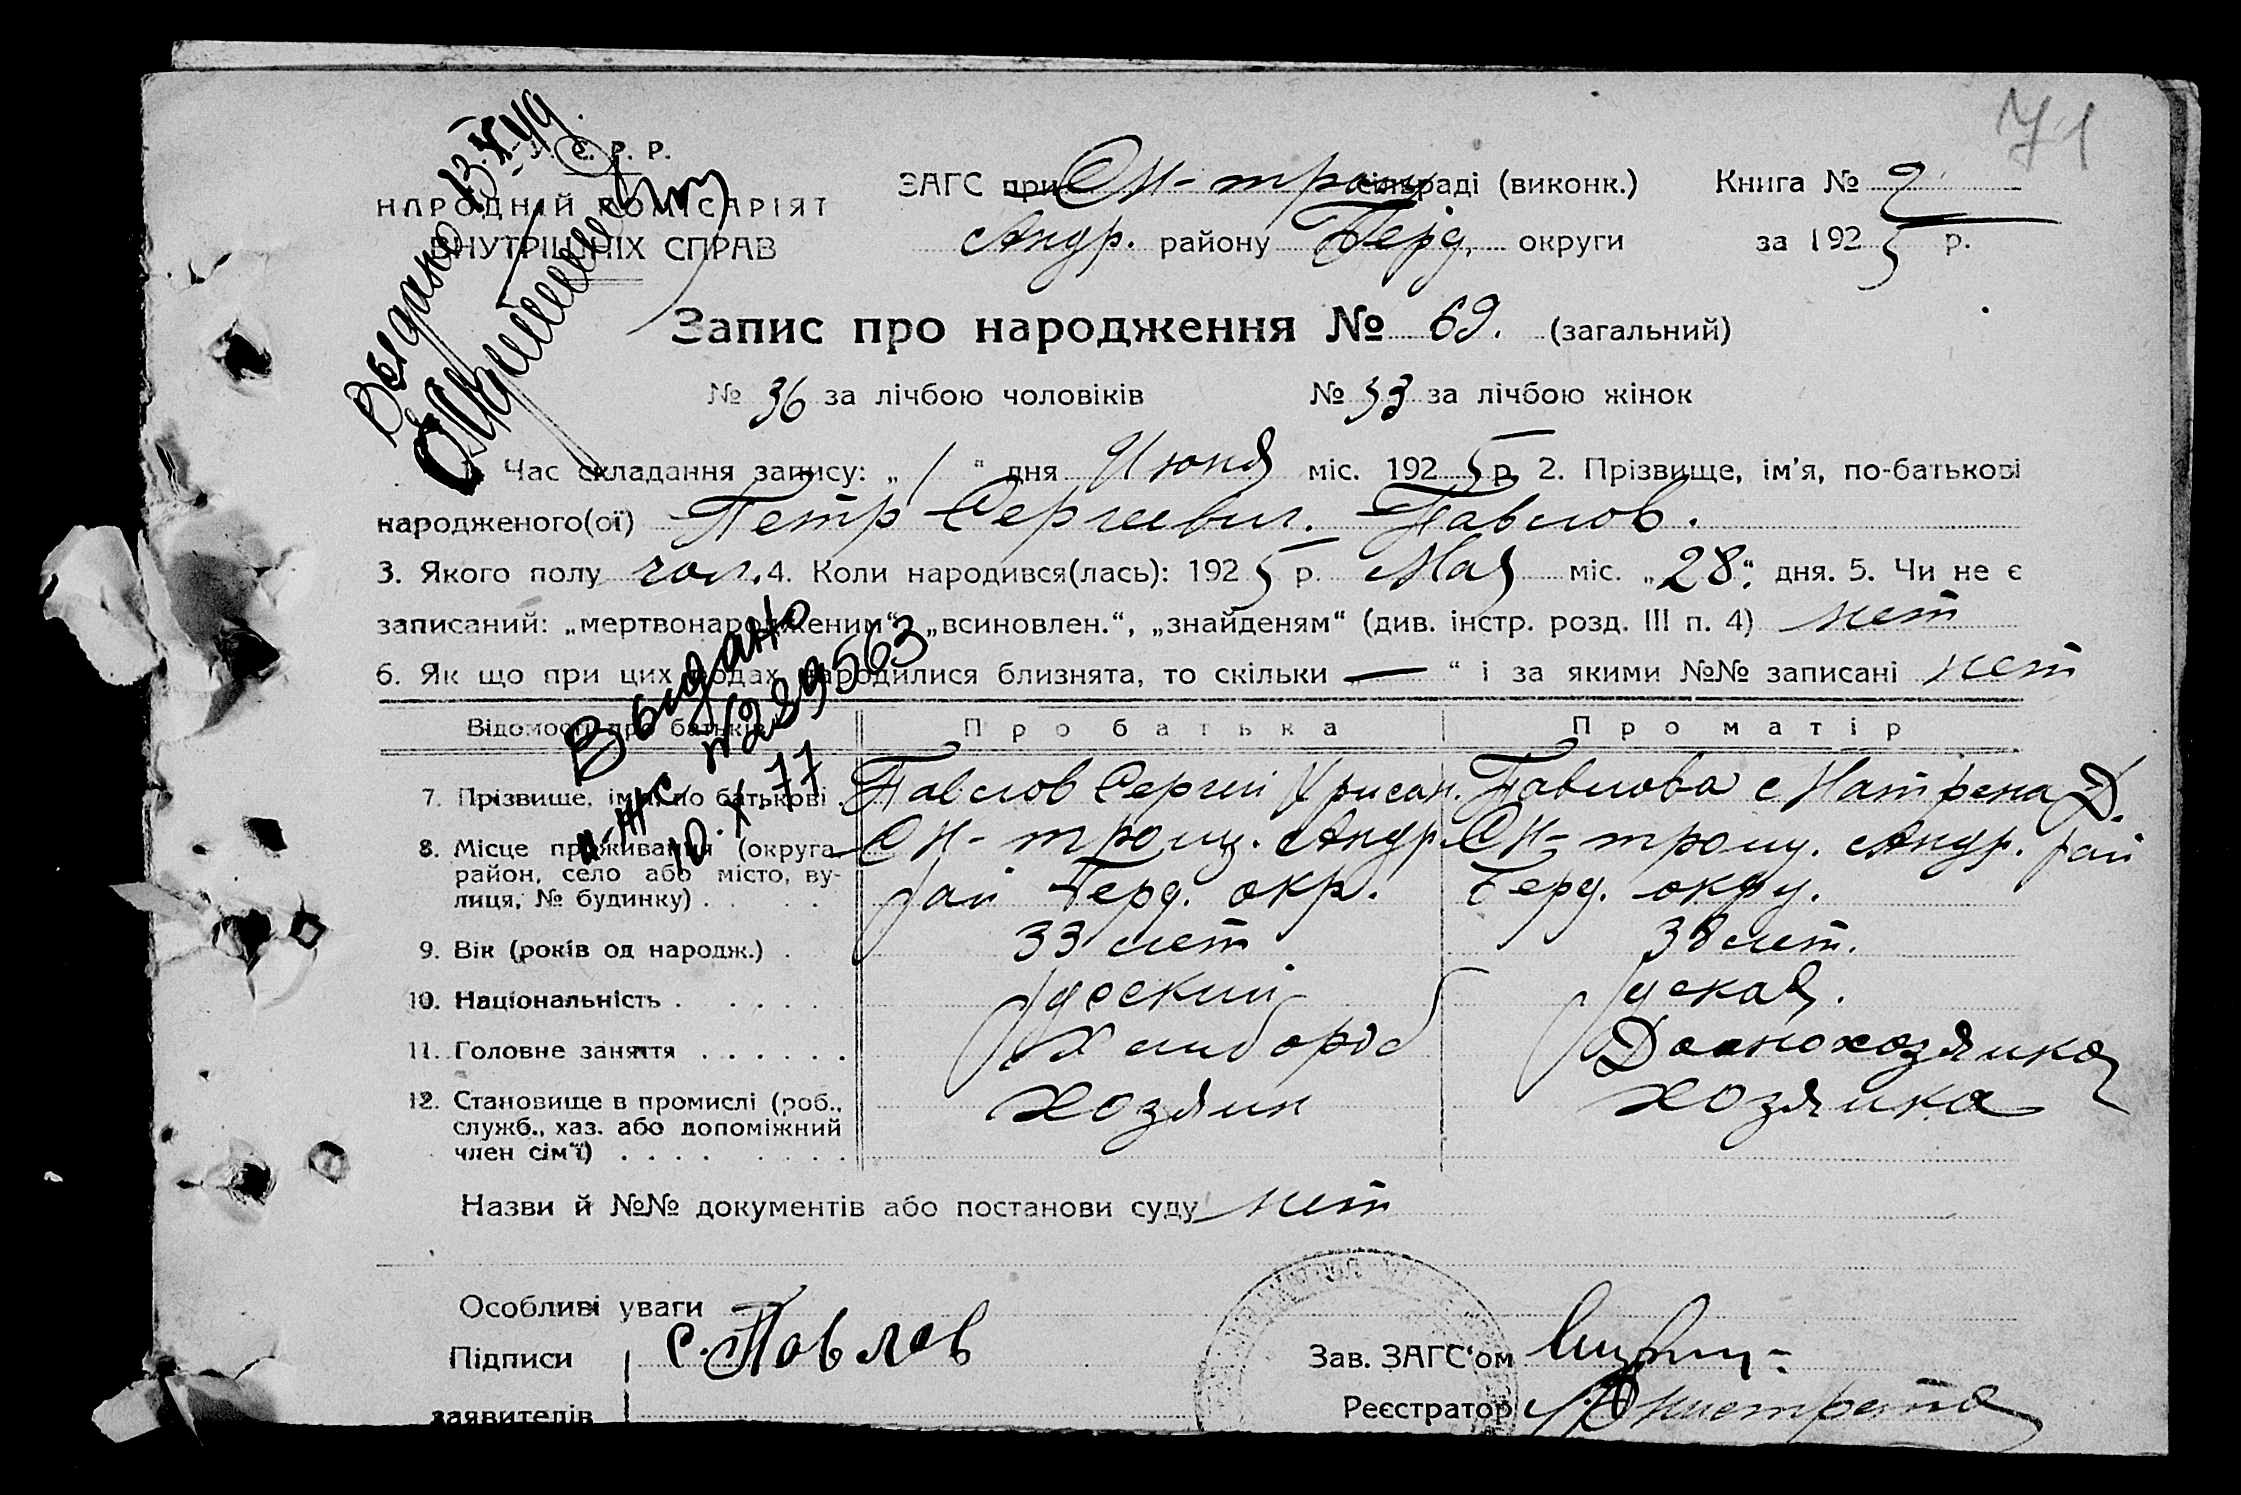 71
У. С. Р. Р.
НАРОДНІЙ КОМІСАРІЯТ
ВНУТРІШНІХ СПРАВ
Выдано 13.X-49.
ЗАГС при Н-троиц сільраді (виконк.) Книга № 2
Андр. району Берд. округи за 1925 р.
Запис про народження № 69. (загальний)
№ 36 за лічбою чоловіків № 33 за лічбою жінок
1. Час складання запису: „1“ дня Июня міс. 1925 р. 2. Прізвище, ім'я, по-батькові
народженого(ої) Петр Сергиевич. Павлов.
3. Якого полу чол. 4. Коли народився(лась): 1925 р. Мая міс. „28“ дня. 5. Чи не є
записаний: „мертвонародженим“, „всиновлен.“, „знайденям“ (див. інстр. розд. III п. 4) нет
6. Як що при цих родах народилися близнята, то скільки „—“ і за якими №№ записані нет
Выдано
№289563
10.X.77
Відомости про батьків Про батька Про матір
7. Прізвище, ім'я, по батькові . Павлов Сергий Хрисан. Павлова Матрена Д.
8. Місце проживання (округа, район, село або місто, ву-
лиця, № будинку) . . . Н-троиц. Андр. рай Берд. окр. Н-троиц. Андр. рай Берд. окру.
9. Вік (років од народж.) . 33 лет 38 лет.
10. Національність . . . . . Русский Руская.
11. Головне заняття . . . . . . Хлибороб Домохозяйка
12. Становище в промислі (роб., Хозяин хозяйка
служб., хаз. або допоміжний
член сім'ї) . . . . . . . .
Назви й №№ документів або постанови суду нет
Особливі уваги
Підписи С. Павлов Зав. ЗАГС'ом
заявителів Реєстратор